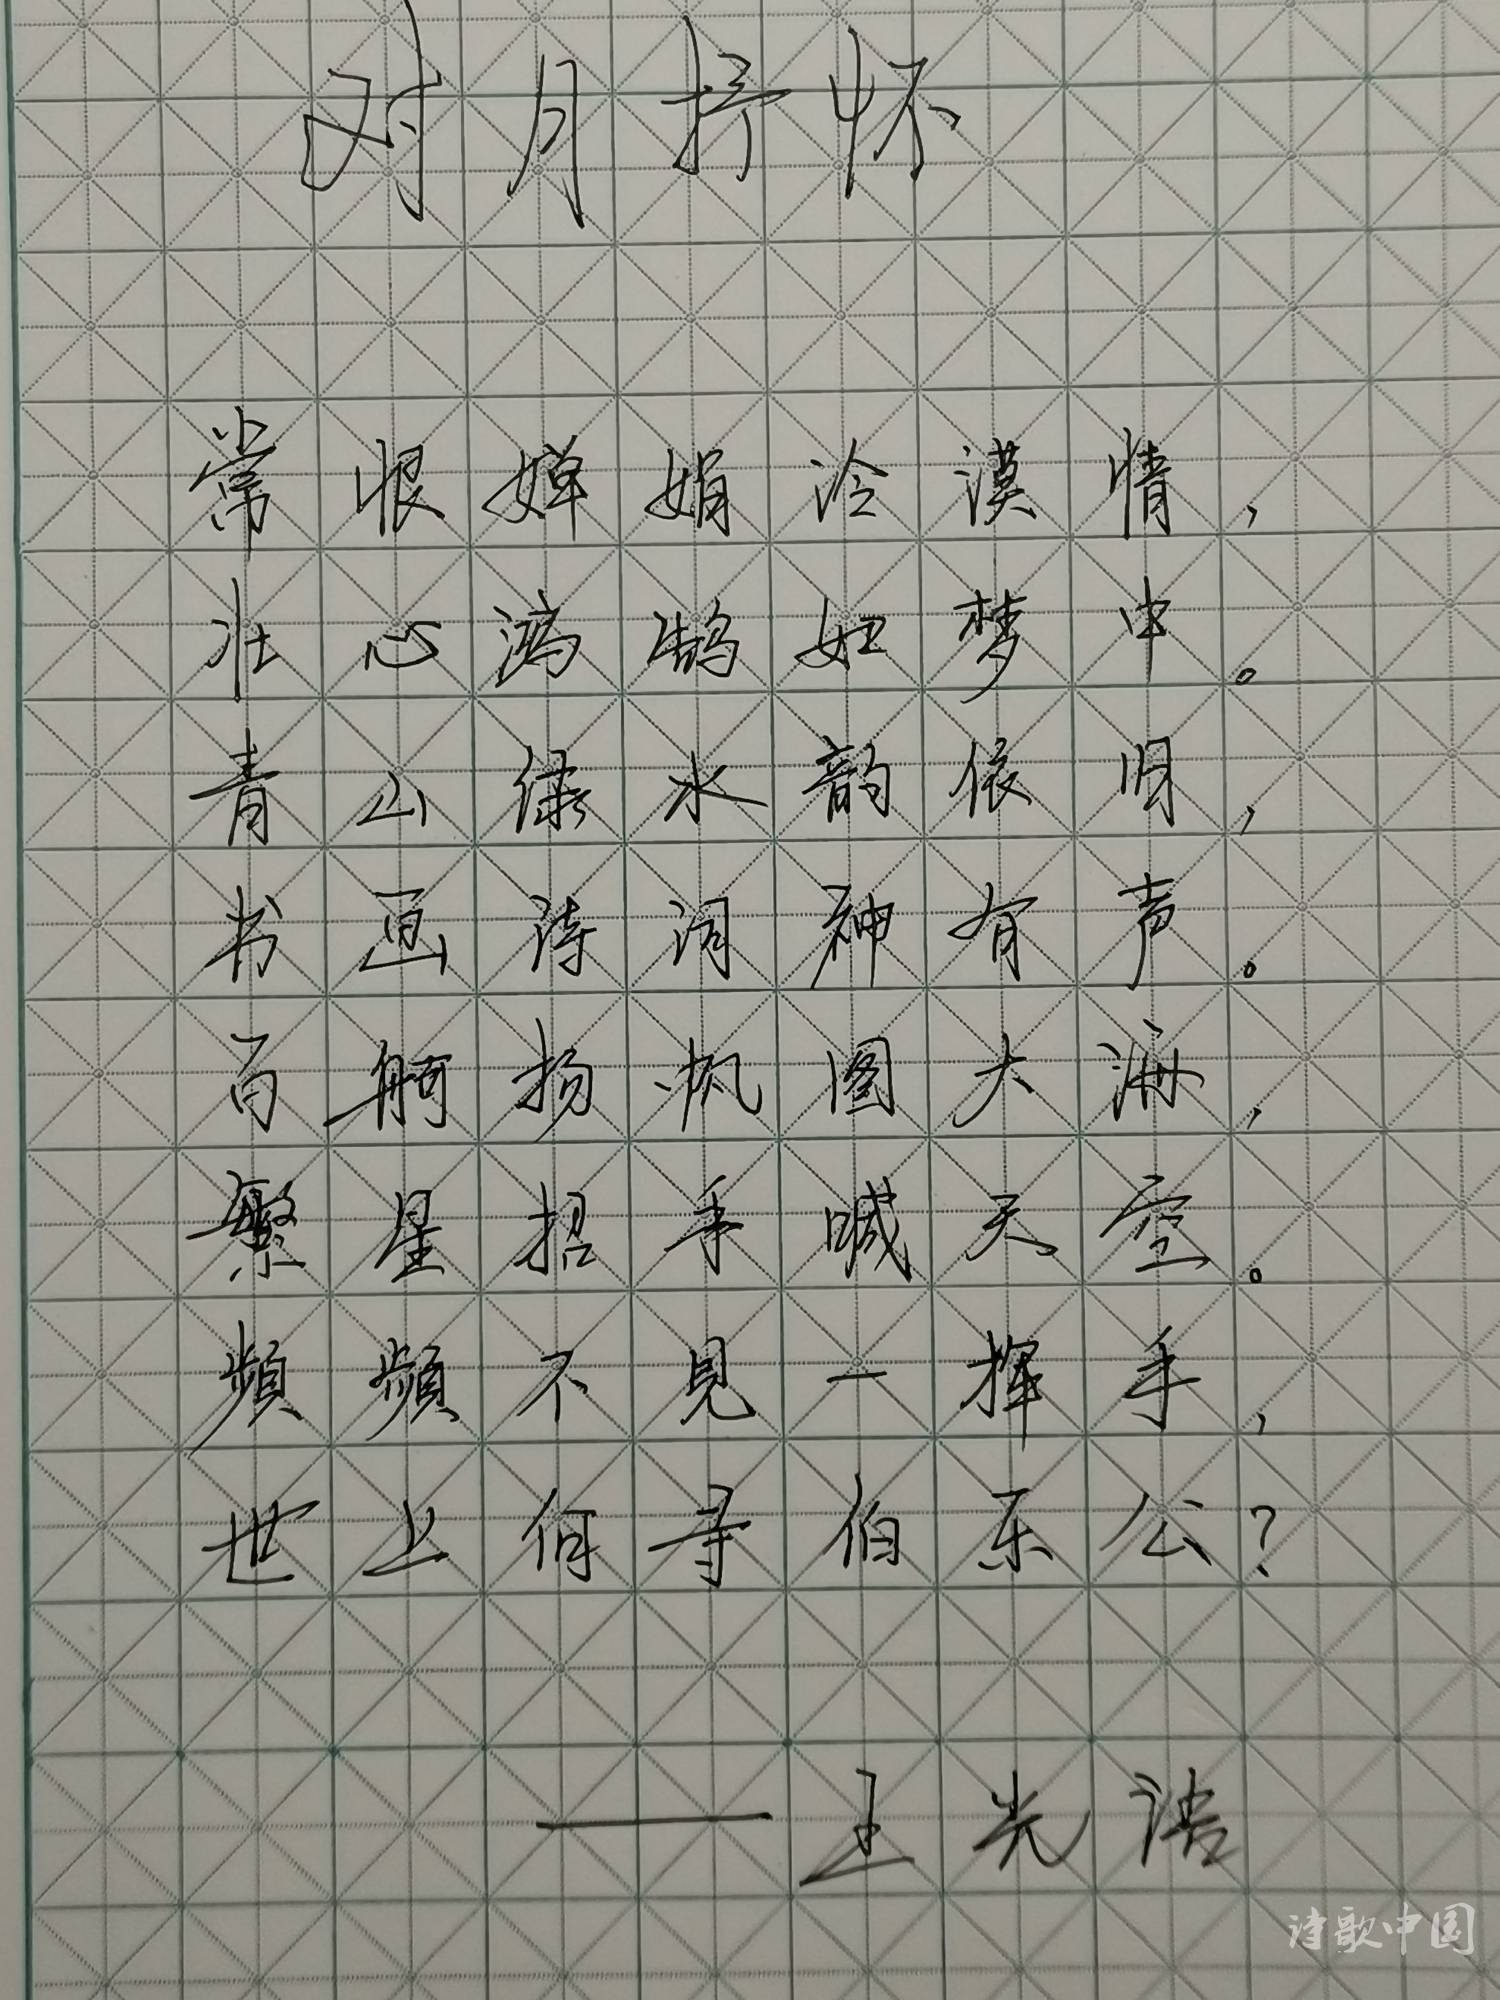 对月抒怀
常恨婵娟冷漠情，
壮心鸿鹄如梦中。
青山绿水韵依旧，
书画诗词神有声。
百舸扬帆图大海，
繁星招手喊天空。
頻頻不見一挥手，
世上何寻伯乐公？
——王光浩
诗歌中国